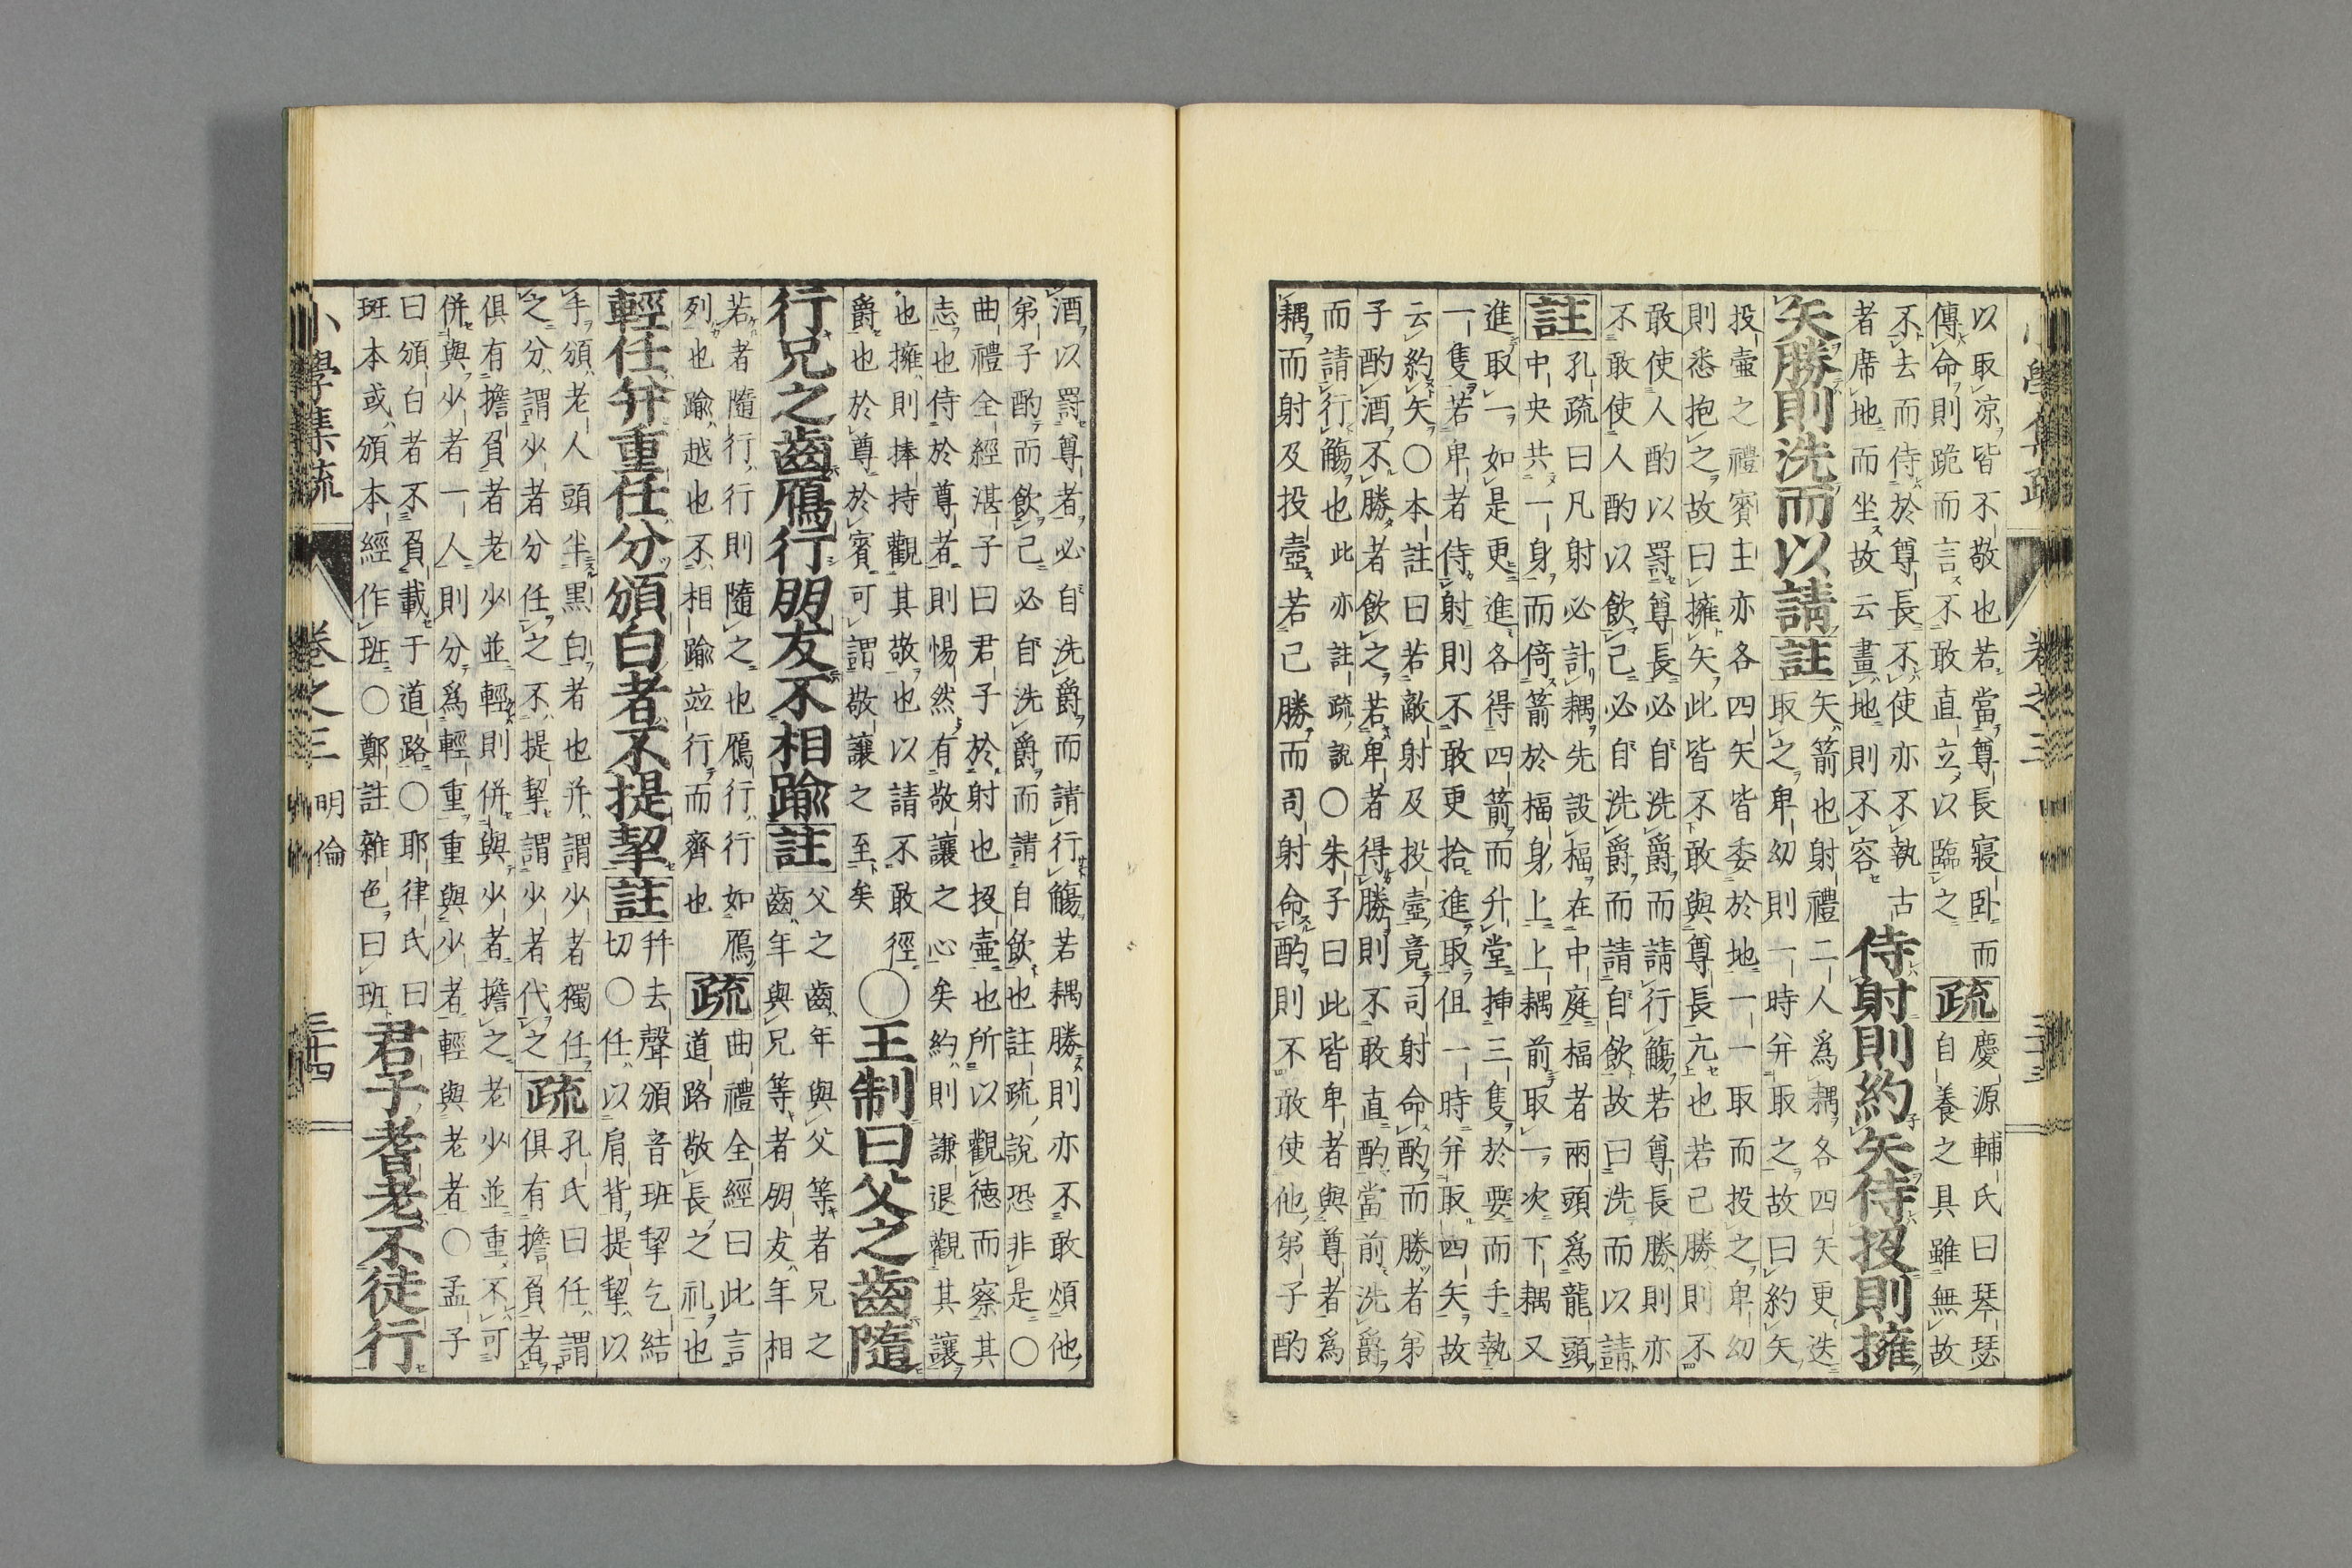 以取凉皆不敬也若當尊長寢卧而
傳命則跪而言不敢直立以臨之
疏
慶源輔氏曰琴瑟
自養之具雖無故
不去而侍於尊長不使亦不執古
者席地而坐故云畫地則不容
侍射則約矢侍投則擁
矢勝則洗而以請註
矢箭也射禮二人爲耦各四矢更迭
取之卑幼則一時弁取之故曰約矢
投壷之禮賓主亦各四矢皆委於地一一取而投之卑幼
則悉抱之故曰擁矢此皆不敢與尊長亢也若己勝則不
敢使人酌以罸尊長必自洗爵而請行觴若尊長勝則亦
不敢使人酌以飲己必自洗爵而請自飲故曰洗而以請
註
孔疏曰凡射必計耦先設楅在中庭楅者兩頭爲龍頭
中央共一身而倚箭於楅身上上耦前取一次下耦又
進取一如是更進各得四箭而升堂挿三隻於要而手執
一隻若卑者侍射則不敢更拾進取但一時弁取四矢故
云約矢〇本註曰若敵射及投壷竟司射命酌而勝者弟
子酌酒不勝者飲之若卑者得勝則不敢直酌當前洗爵
而請行觴也此亦註疏說〇朱子曰此皆卑者與尊者爲
耦而射及投壷若己勝而司射命酌則不敢使他弟子酌
酒以罸尊者必自洗爵而請行觴若耦勝則亦不敢煩他
弟子酌而飲己必自洗爵而請自飲也註疏說恐非是〇
曲禮全經湛子曰君子於射也投壷也所以觀德而察其
志也侍於尊者則惕然有敬讓之心矣約則謙退觀其讓
也擁則捧持觀其敬也以請不敢徑
爵也於尊於賓可謂敬讓之至矣
〇王制曰父之齒隨
行兄之齒鴈行朋友不相踰註
父之齒年與父等者兄之
齒年與兄等者朋友年相
若者隨行行則隨之也鴈行行如鴈
列也踰越也不相踰竝行而齊也
疏
曲禮全經曰此言
道路敬長之礼也
輕任弁重任分頒白者不提挈註
弁去聲頒音班挈乞結
切〇任以肩背提挈以
手頒老人頭半黒白者也弁謂少者獨任
之分謂少者分任之不提挈謂少者代之
疏
孔氏曰任謂
俱有擔負者
俱有擔負者老少並輕則併與少者擔之老少並重不可
併與少者一人則分爲輕重重與少者輕與老者〇孟子
曰頒白者不負載于道路〇耶律氏曰
班本或頒本經作班〇鄭註雜色曰班
君子耆老不徒行
小學集疏
卷之三
明倫
三十四
卷之三
三十三